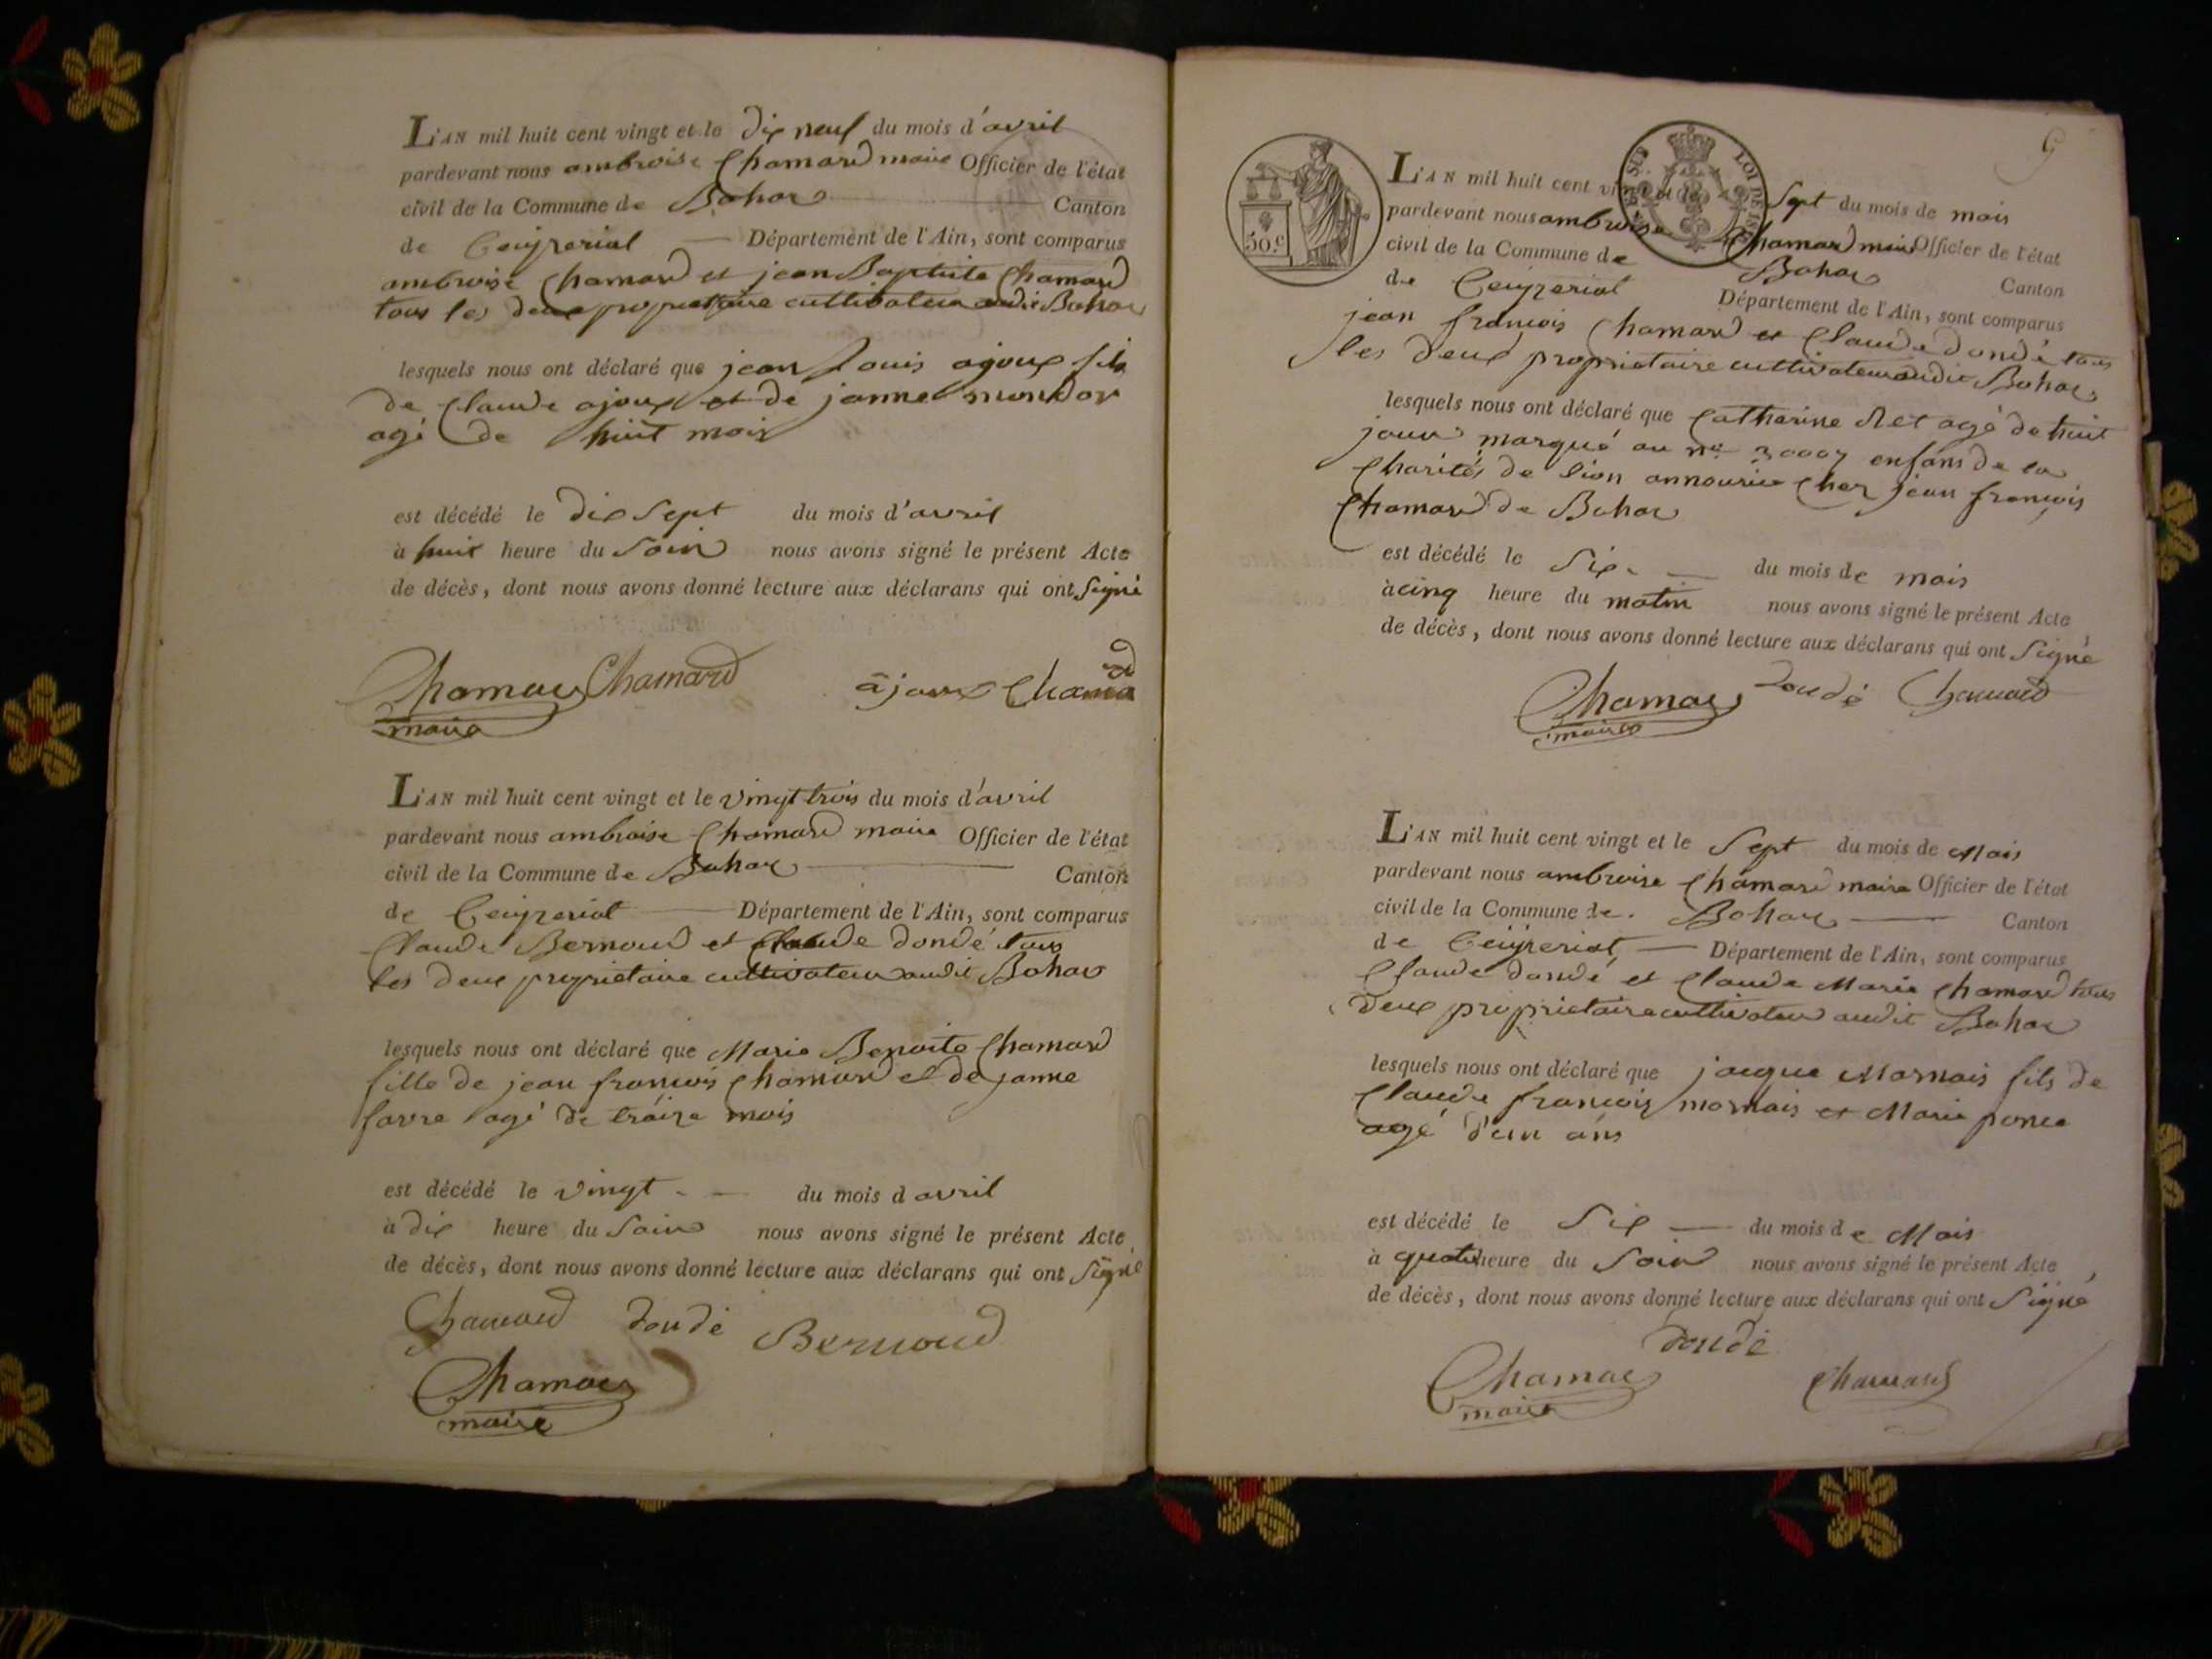 L'AN mil huit cent vingt et le dix neuf du mois d'avril
pardevant nous ambroise Chamard maire Officier de l'état
civil de la Commune de Bohas Canton
de Ceyzeriat Département de l'Ain, sont comparus
ambroise Chamard et jean Baptiste Chamard
tous les deux propriétaire cultivateur audit Bohas
lesquels nous ont déclaré que jean Louis ajoux fils
de Claude ajoux et de janne
agé de huit mois
est décédé le dix Sept du mois d'avril
à huit heure du Soir nous avons signé le présent Acte
de décès, dont nous avons donné lecture aux déclarans qui ont Signé
Chamard Chamard ajoux Chamard
maire
L'AN mil huit cent vingt et le vingt trois du mois d'avril
pardevant nous ambroise Chamard maire Officier de l'état
civil de la Commune de Bohas Canton
de Ceyzeriat Département de l'Ain, sont comparus
Claude Bernoud et Claude dondé tous
les deux proprietaire cultivateur audit Bohas
lesquels nous ont déclaré que Marie Benoite Chamard
fille de jean francois Chamard et de janne
favre agé de tráize mois
est décédé le vingt du mois d avril
à dix heure du Soir nous avons signé le présent Acte
de décès, dont nous avons donné lecture aux déclarans qui ont Signé
Chamard dondé Bernoud
Chamard
maire
5
50 c
LOI DE
L'AN mil huit cent vingt et le Sept du mois de mais
pardevant nous ambroise Chamard maire Officier de l'état
civil de la Commune de Bohas Canton
de Ceyzeriat Département de l'Ain, sont comparus
jean francois Chamard et Claude dondé tous
les deux proprietaire cultivateur audit Bohas
lesquels nous ont déclaré que Catharine agé de huit
jours marqué au no enfans de la
Charités de lion annourice Chez jean francois
Chamard de Bohas
est décédé le Six du mois de mais
à cinq heure du matin nous avons signé le présent Acte
de décès, dont nous avons donné lecture aux déclarans qui ont Signé
Chamard dondé Chamard
maire
L'AN mil huit cent vingt et le Sept du mois de Mais
pardevant nous ambroise Chamard maire Officier de l'état
civil de la Commune de Bohas Canton
de Ceyzeriat Département de l'Ain, sont comparus
Claude dondé et Claude Marie Chamard tous
deux proprietaire cultivateur audit Bohas
lesquels nous ont déclaré que jacque Mornais fils de
Claude francois mornais et Marie ponce
agé d'un áns
est décédé le Six du mois de Mais
à quatre heure du Soir nous avons signé le présent Acte
de décès, dont nous avons donné lecture aux déclarans qui ont Signé
dondé
Chamard Chamard
maire